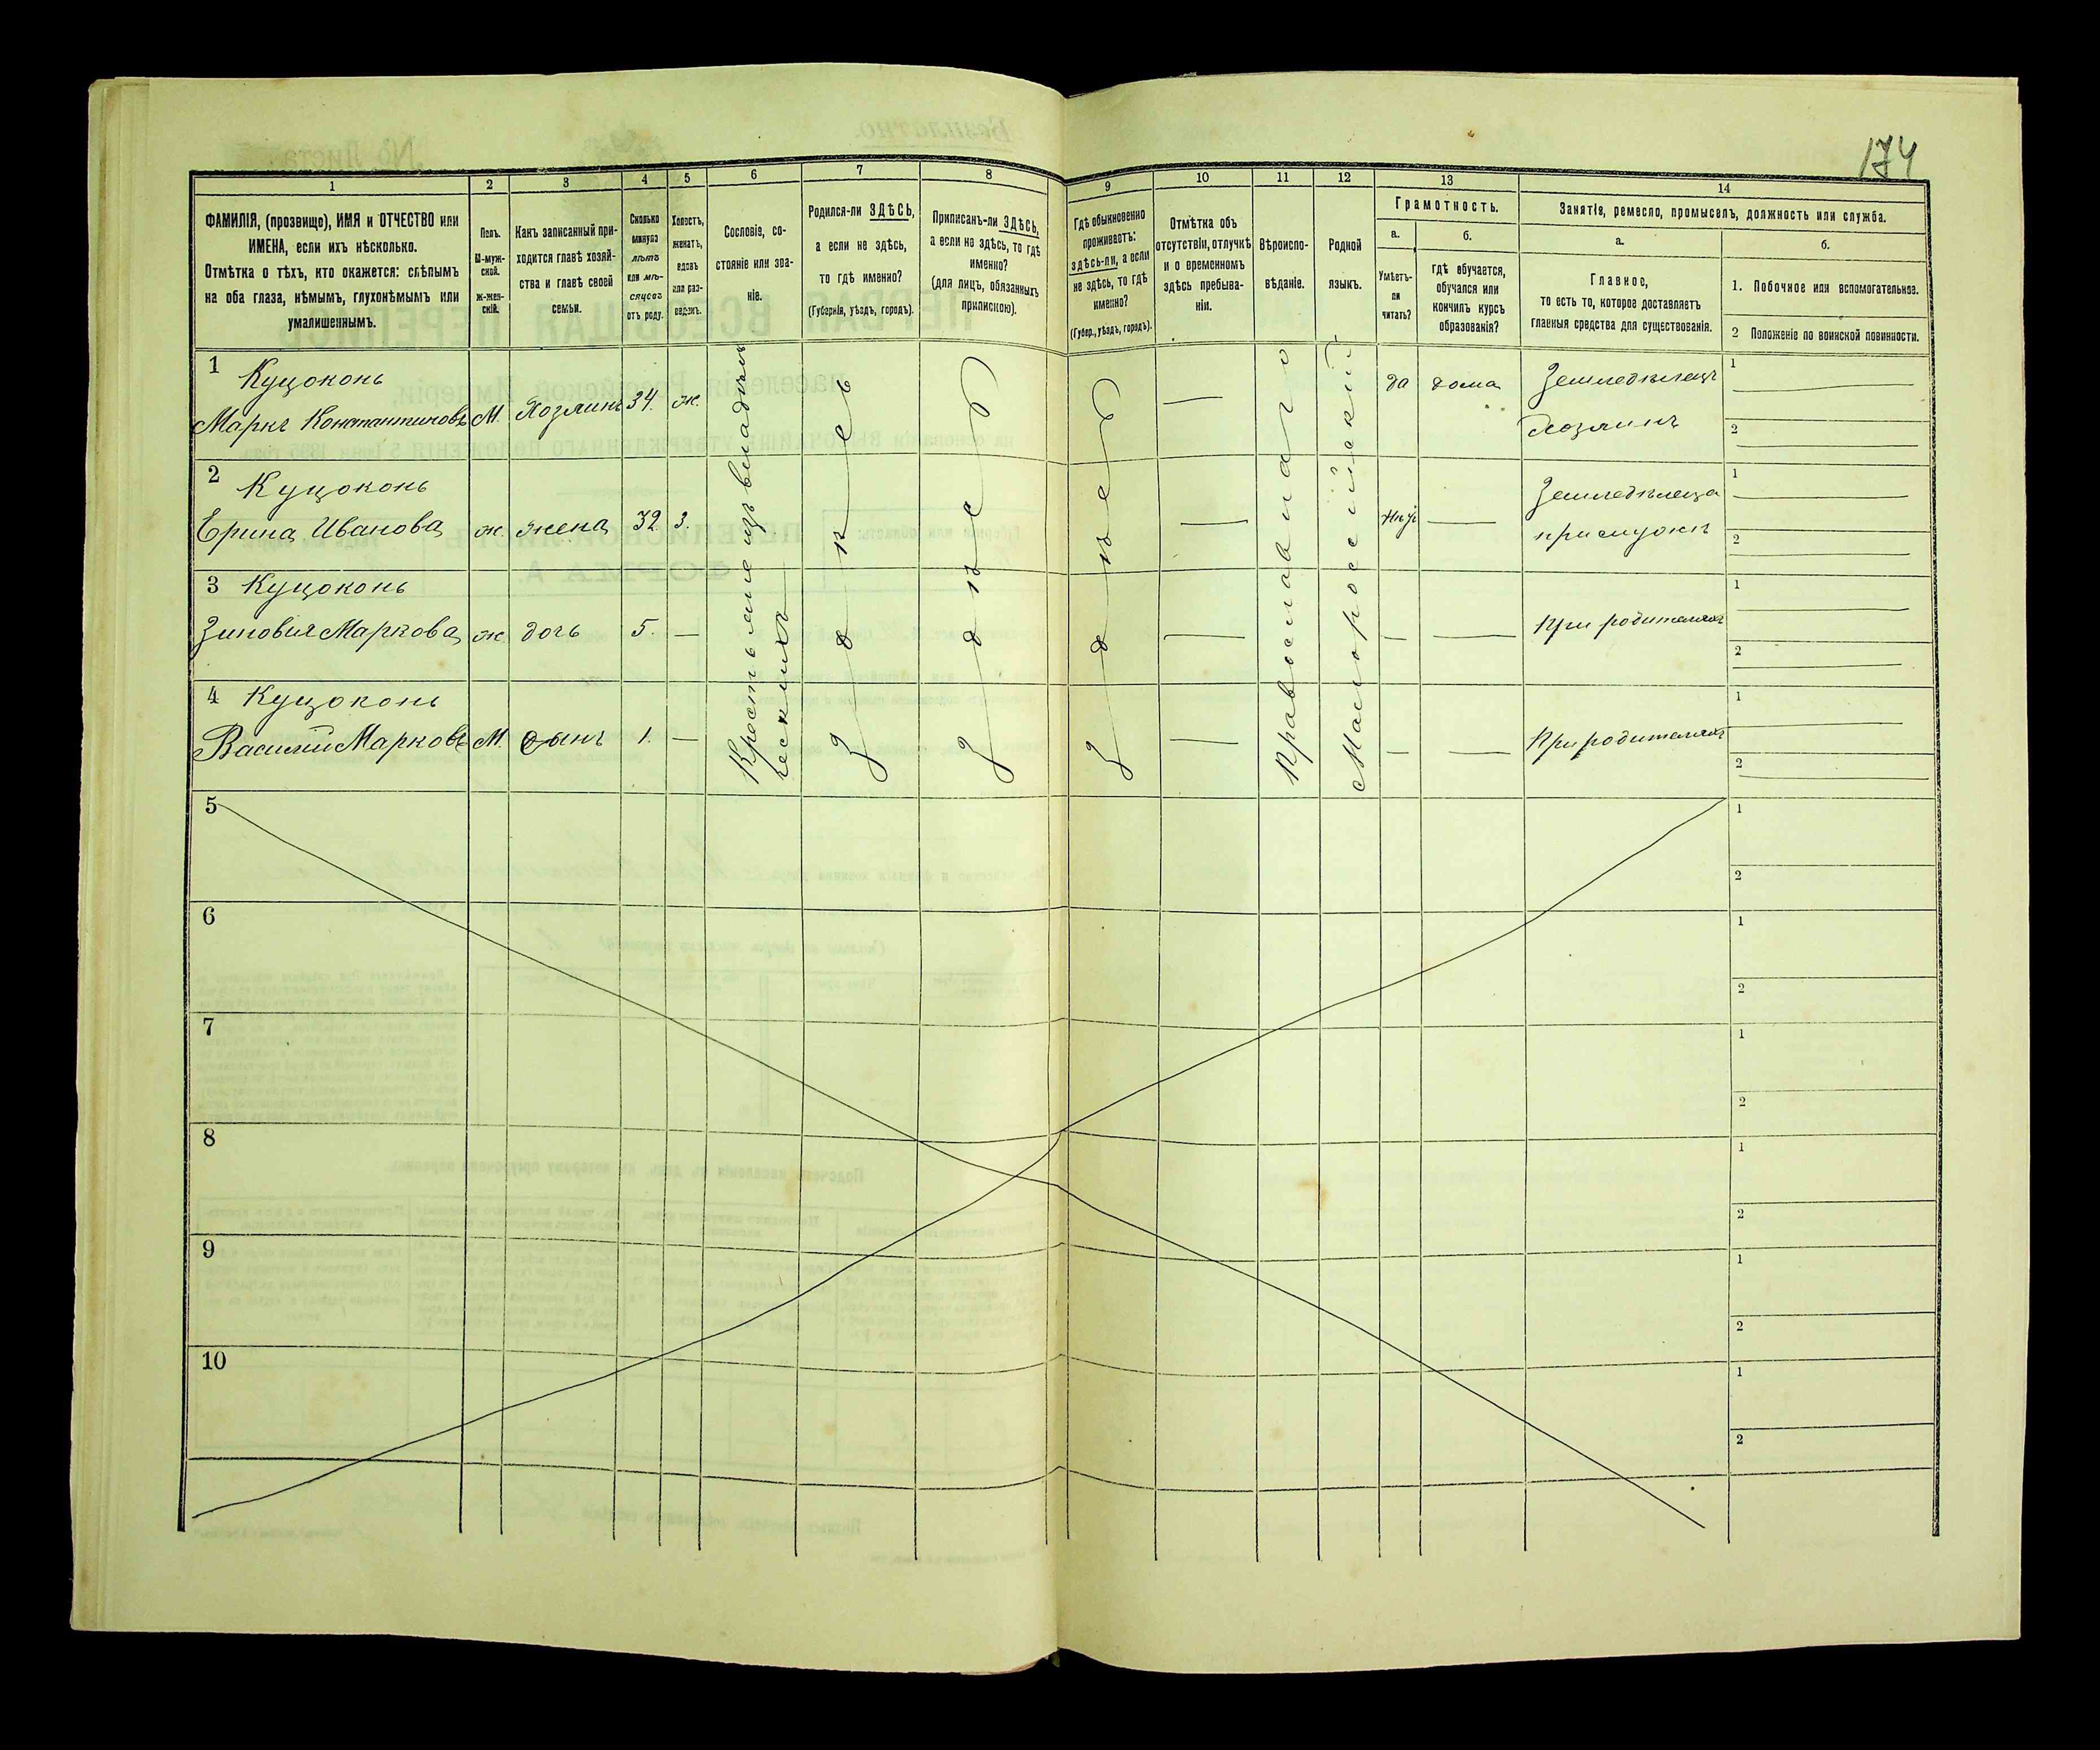 174
1 2 3 4 5 6 7 8 9 10 11 12 13 14
ФАМИЛІЯ, (прозвище), ИМЯ и ОТЧЕСТВО или
ИМЕНА, если ихъ нѣсколько.
Отмѣтка о тѣхъ, кто окажется: слѣпымъ
на оба глаза, нѣмымъ, глухонѣмымъ или
умалишеннымъ.
Полъ.
М-муж-
ской.
ж-жен-
скій.
Какъ записанный при-
ходится главѣ хозяй-
ства и главѣ своей
семьи.
Сколько
минуло
лѣтъ
или мѣ-
сяцевъ
отъ роду.
Холостъ,
женатъ,
вдовъ
или раз-
веденъ.
Сословіе, со-
стояніе или зва-
ніе.
Родился-ли ЗДѢСЬ,
а если не здѣсь,
то гдѣ именно?
(Губернія, уѣздъ, городъ).
Приписанъ-ли ЗДѢСЬ,
а если не здѣсь, то гдѣ
именно?
(для лицъ, обязанныхъ
припискою).
Гдѣ обыкновенно
проживаетъ:
здѣсь-ли, а если
не здѣсь, то гдѣ
именно?
(Губер., уѣздъ, городъ).
Отмѣтка объ
отсутствіи, отлучкѣ
и о временномъ
здѣсь пребыва-
ніи.
Вѣроиспо-
вѣданіе.
Родной
языкъ.
Грамотность.
а.
Умѣетъ-
ли
читать?
б.
гдѣ обучается,
обучался или
кончилъ курсъ
образованія?
Занятіе, ремесло, промыселъ, должность или служба.
а.
Главное,
то есть то, которое доставляетъ
главныя средства для существованія.
б.
1. Побочное или вспомогательное.
2 Положеніе по воинской повинности.
1 Куцоконь
Маркъ Константиновъ М. Хозяинъ 34. ж. да дома Земледѣлецъ
Хозяинъ
1
2
2 Куцоконь
Ерина Иванова ж. жена 32 з. Земледѣльца
1
2
3 Куцоконь
Зиновия Маркова ж дочь 5. — — — При родителяхъ
1
2
4 Куцоконь
Василий Марковъ М. сынъ 1. — — — При родителяхъ
1
2
здѣсь
здѣсь
здѣсь
Православнаго
Малороссійский
5 1
2
6 1
2
7 1
2
8 1
2
9 1
2
10 1
2